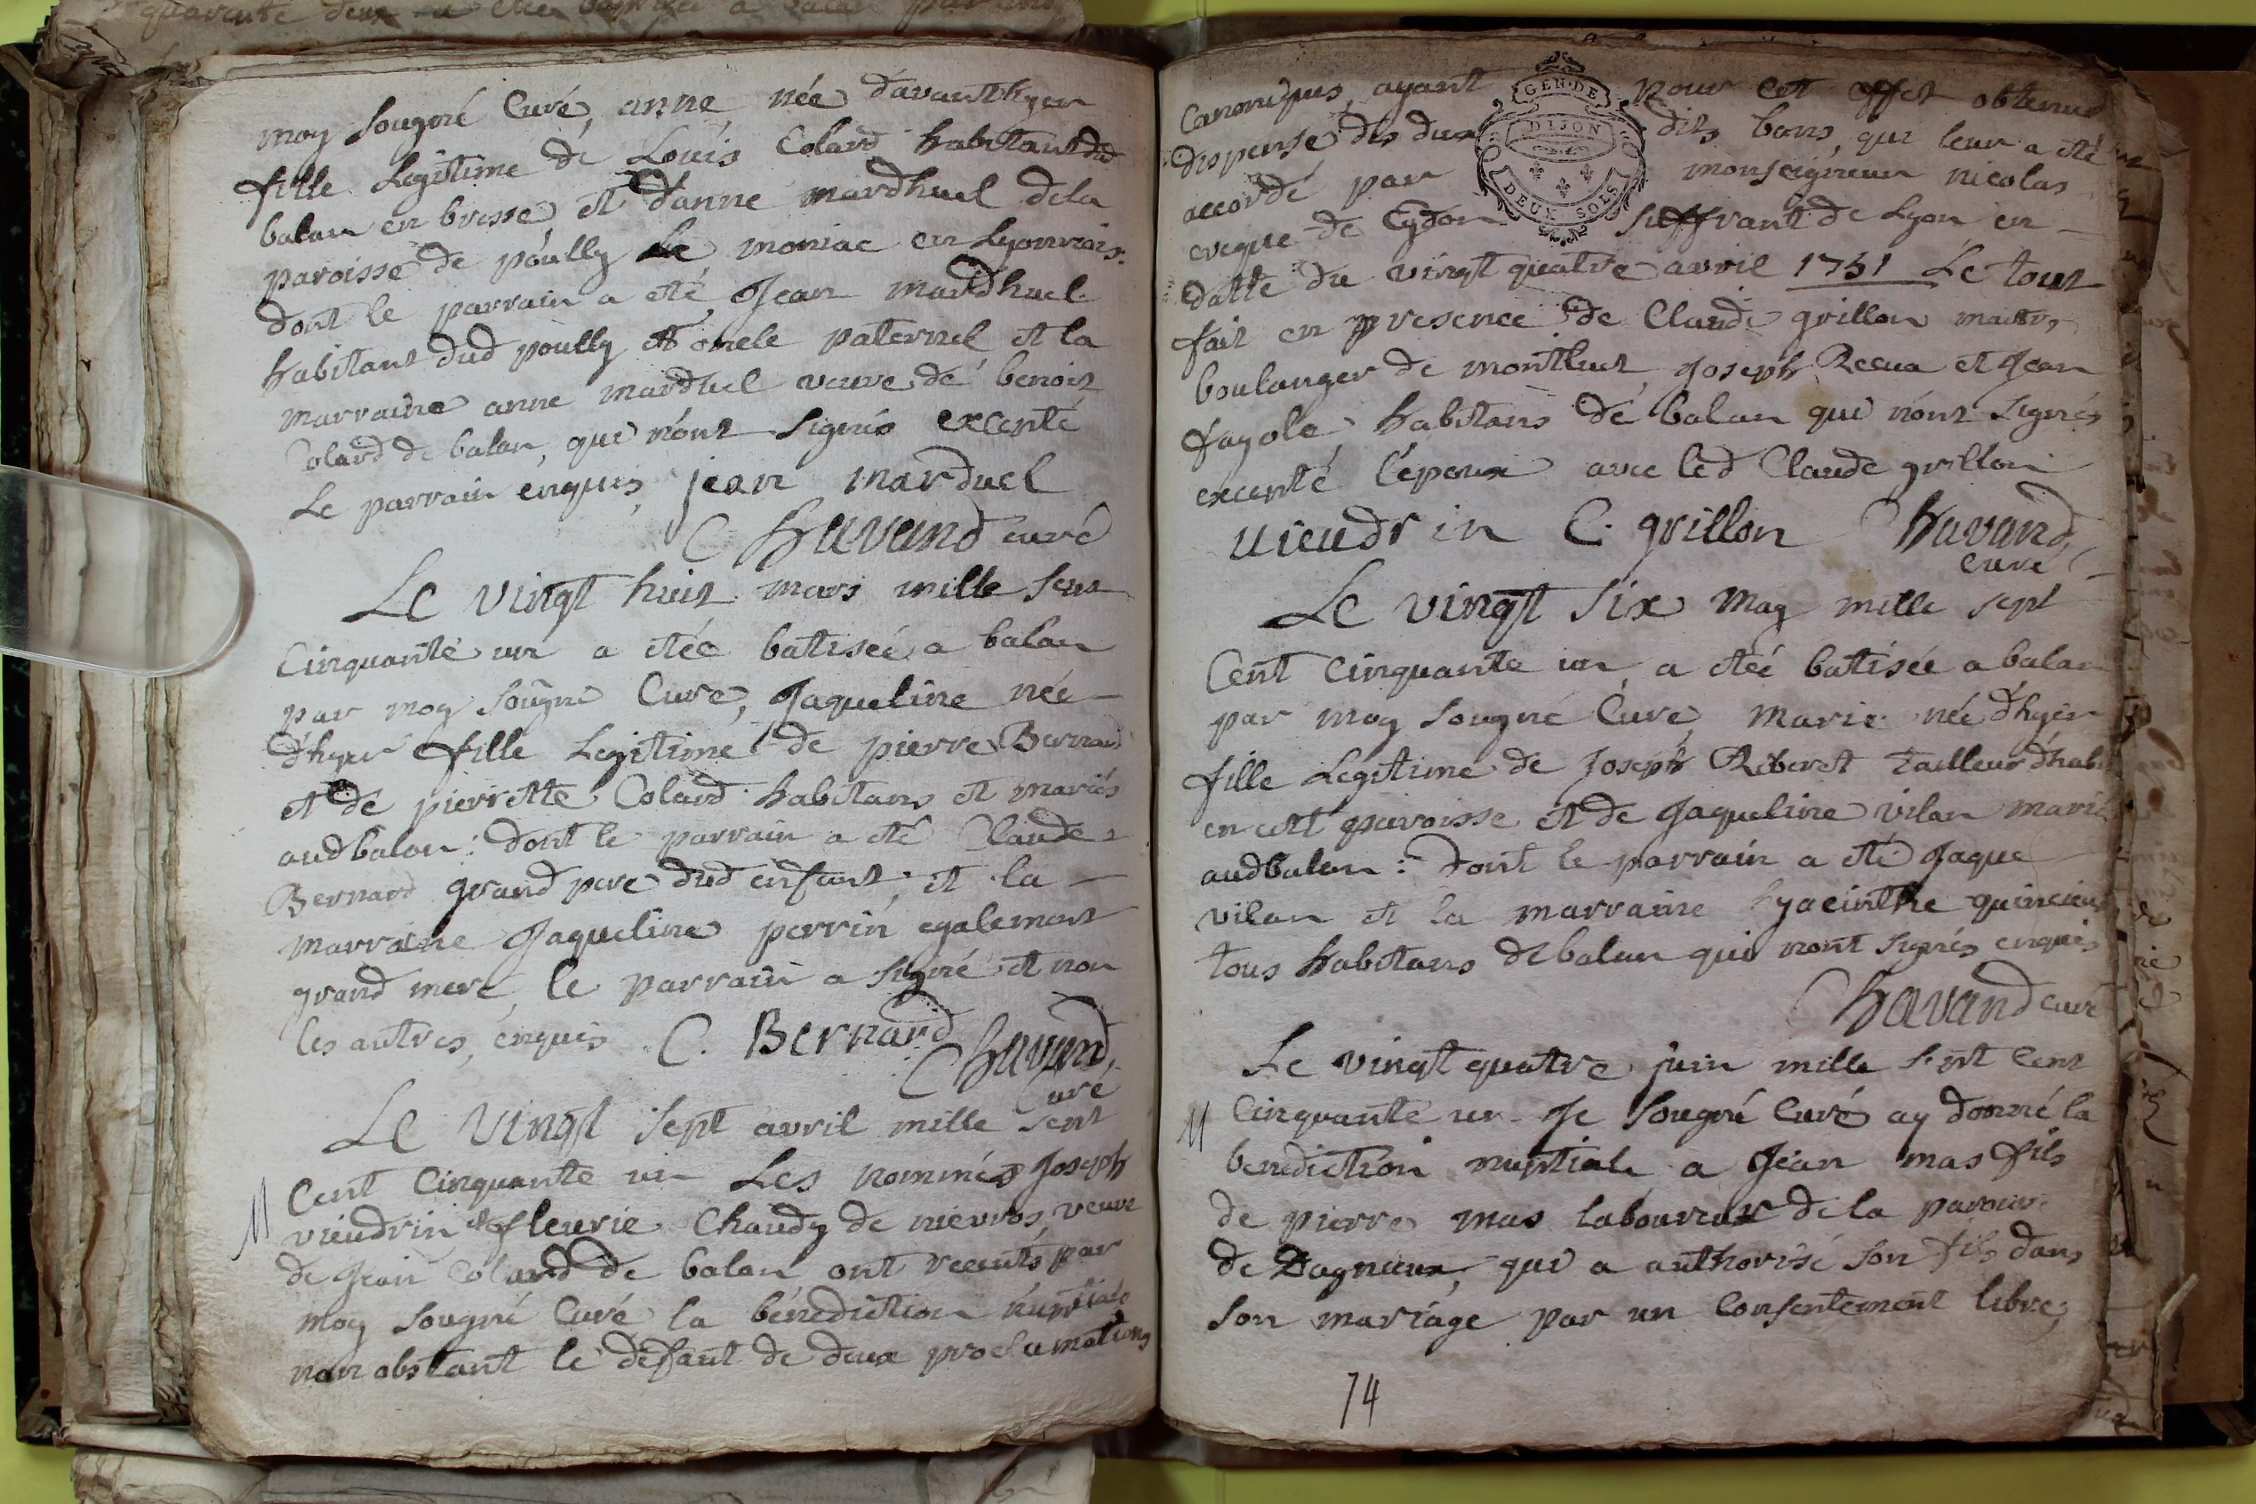 moy sougné Curé, anne, née d'avanthyer
fille legitime de Louis Colard habitant dud
balan en bresse, et d'anne mardhuel de la
paroisse de poully Le moniac en Lyonnois.
dont le parrain a eté Jean mardhuel
habitant dud poully et oncle paternel et la
marraine anne marduel veuve de benoit
Colard de balan, qui n'ont signés excepté
Le parrain enquis, jean marduel
Chavand curé
Le vingt huit mars mille sept
Cinquante un a etée batisée a balan
par moy sougné Curé, Jaqueline née
d'hyer fille Legitime de pierre Bernard
et de pierrette Colard habitans et mariés
audbalan: dont le parrain a eté Claude
Bernard grand pere dud enfant; et la
marraine Jaqueline perrin egalement
grand mere, le parrain a signé et non
les autres, enquis C. Bernard
Chavand,
Curé
Le vingt sept avril mille sept
Cent Cinquante un Les nommés Joseph
M vieudrin et fleurie Chaudy de nievros, veuve
de Jean Colard de balan ont receuts par
moy sougné Curé la bénédiction nuptiale
nonobstant le defaut de deux proclamations
Canoniques, ayant pour cet effet obtenue
dispense des deux dits bans, qui leur a eté
accordé par monseigneur nicolas
eveque de Cydon suffrant de Lyon en
GEN. DE
DIJON
DEUX SOLS
datte du vingt quatre avril 1751 Le tout
fait en presence de Claude grillon maitre
boulanger de montluet, Joseph Recua et Jean
fagole habitans de balan qui n'ont signés
excepté l'epoux avec led Claude grillon
uieudrin C. grillon Chavand,
curé
Le vingt six may mille sept
Cent Cinquante un, a etée batisée a balan
par moy sougné Curé, Marie née d'hyer
fille Legitime de Joseph Riberet Tailleur d'habi
en cett paroisse et de Jaqueline vilan mariés
audbalan: dont le parrain a eté Jaque
vilan et la marraine hyacinthe quincieux
tous habitans de balan qui n'ont signés enquis
Chavand curé
Le vingt quatre juin mille sept Cent
M Cinquante un Je sougné Curé ay donné la
benediction nuptiale a Jean mas fils
de pierre mas laboureur de la paroisse
de Dagnieux, qui a authorisé son fils dans
son mariage par un Consentement libre,
74